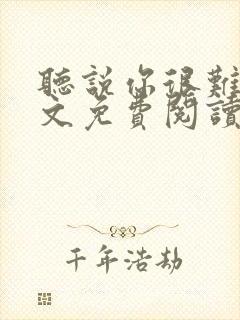 聽説你很難
文免費閱讀
千年浩劫